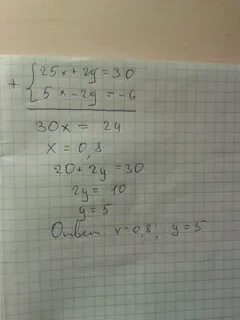 + { 25x+2y=30
5x-2y=-6
30x = 24
x = 0,8
20+2y=30
2y = 10
y = 5
Ответ: x=0,8, y=5